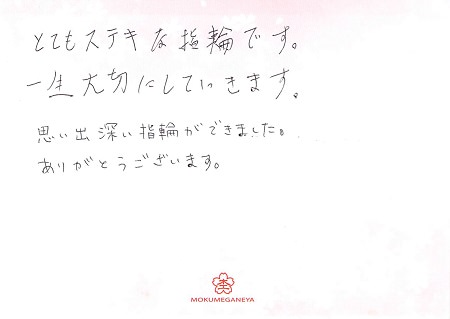 とてもステキな指輪です。
一生大切にしていきます。
思い出深い指輪ができました。
ありがとうございます。
MOKUMEGANEYA